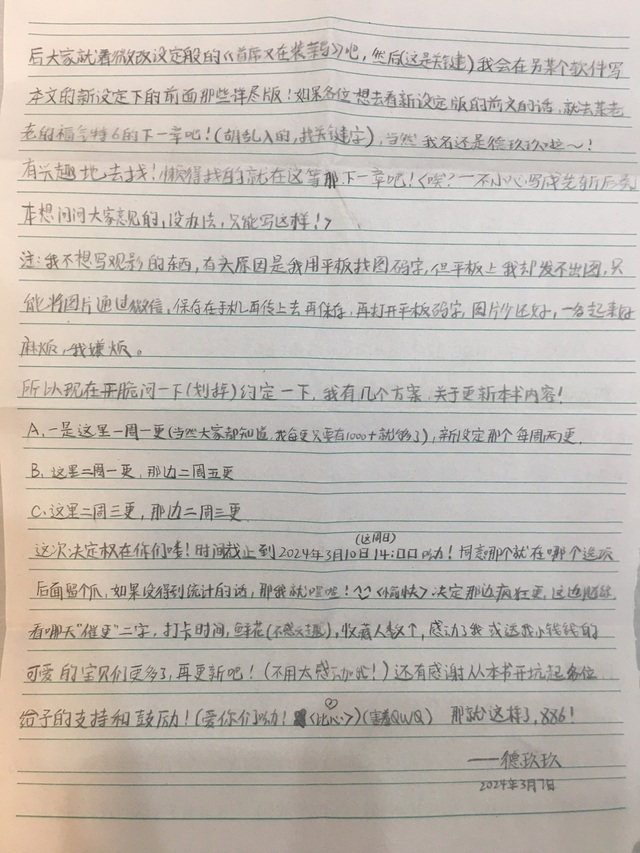 后大家就看微改设定般的《首席又在装萌》吧,然后(这是关键)我会在另某个软件写
本文的新设定下的前面那些详尽版!如果各位想去看新设定版的前文的话,就去某老
老的福冬特6的下一章吧!(胡乱入的,找关键字),当然我名还是德玖玖啦~!
有兴趣地去找!懒得找的就在这等那下一章吧!<唉?一不小心写成先斩后奏
本想问问大家意见的,没办法,只能写这样!>
注:我不想写观影的东西,有关原因是我用平板找图码字,但平板上我却发不出图,只
能将图片通过微信,保存在手机再传上去再保存,再打开平板码字,图片少还好,一多起来好
麻烦,我嫌烦。
所以现在开脆问一下(划掉)约定一下,我有几个方案,关于更新本书内容!
A.一是这里一周一更(当然大家都知道,我每更只要有1000+就够了),新设定那个每周两更.
B.这里二周一更,那边二周五更
C.这里二周三更,那边二周三更
这次决定权在你们喽!时间截止到2024年3月10日(这周日)14:00哟!同意那个就在哪个选项
后面留个爪,如果没得到统计的话,那我就嘿嘿!^^<愉快>决定那边疯狂更,这边
看哪天"催更"二字,打卡时间,鲜花(不感兴趣),收藏人数个,感动了我或送我小钱钱的
可爱的宝贝们更多了,再更新吧!(不用太感动哦!)还有感谢从本书开坑起各位
给予的支持和鼓励!(爱你们哟!<比心♡>)(害羞QWQ) 那就这样了,886!
——德玖玖
2024年3月7日